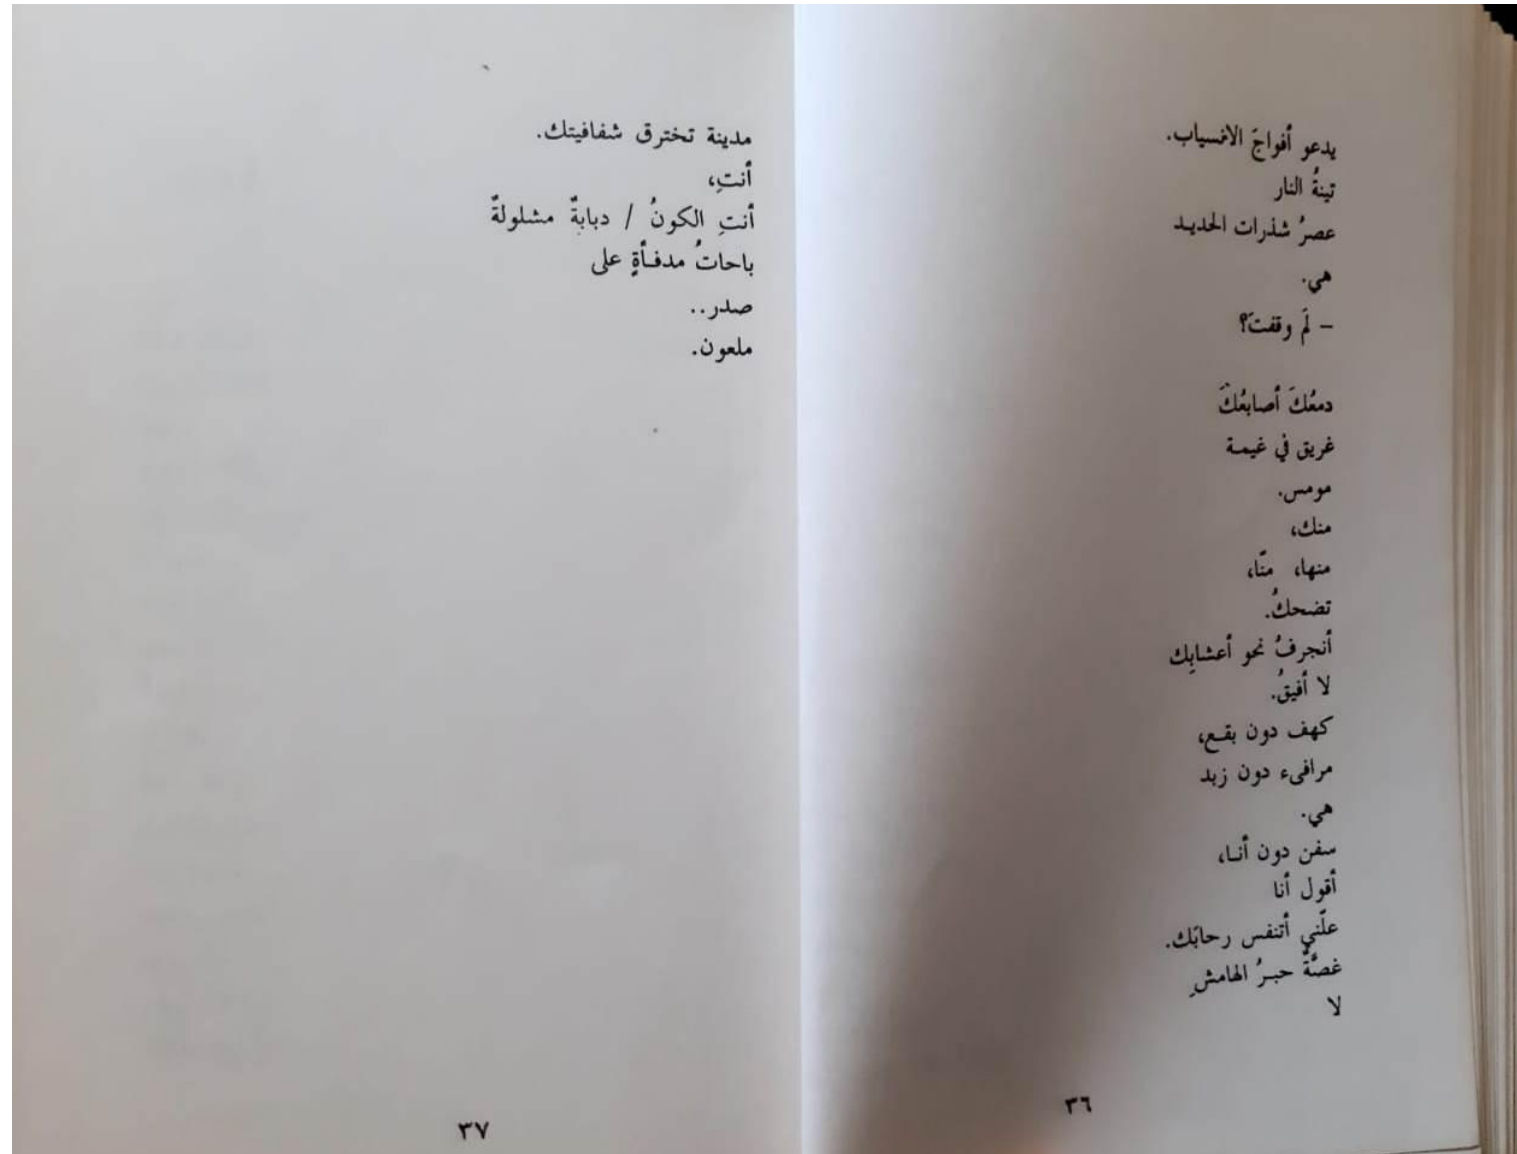 يدعو أفواجَ الانسياب.
تينةُ النار
عصرُ شذرات الحديد
هي.
– لَم وقفتَ؟
دمعُكَ أصابعُكَ
غريق في غيمة
مومس.
منك،
منها، منّا،
تضحكُ.
أنجرفُ نحو أعشابِك
لا أفيقُ.
كهف دون بقع،
مرافىء دون زبد
هي.
سفن دون أنا،
أقول أنا
علّني أتنفس رحابَك.
غصَّةٌ حبرُ الهامشِ
لا
٣٦
مدينة تخترق شفافيتك.
أنتِ،
أنتِ الكونُ / دبابةٌ مشلولةٌ
باحاتُ مدفأةٍ على
صدر..
ملعون.
٣٧